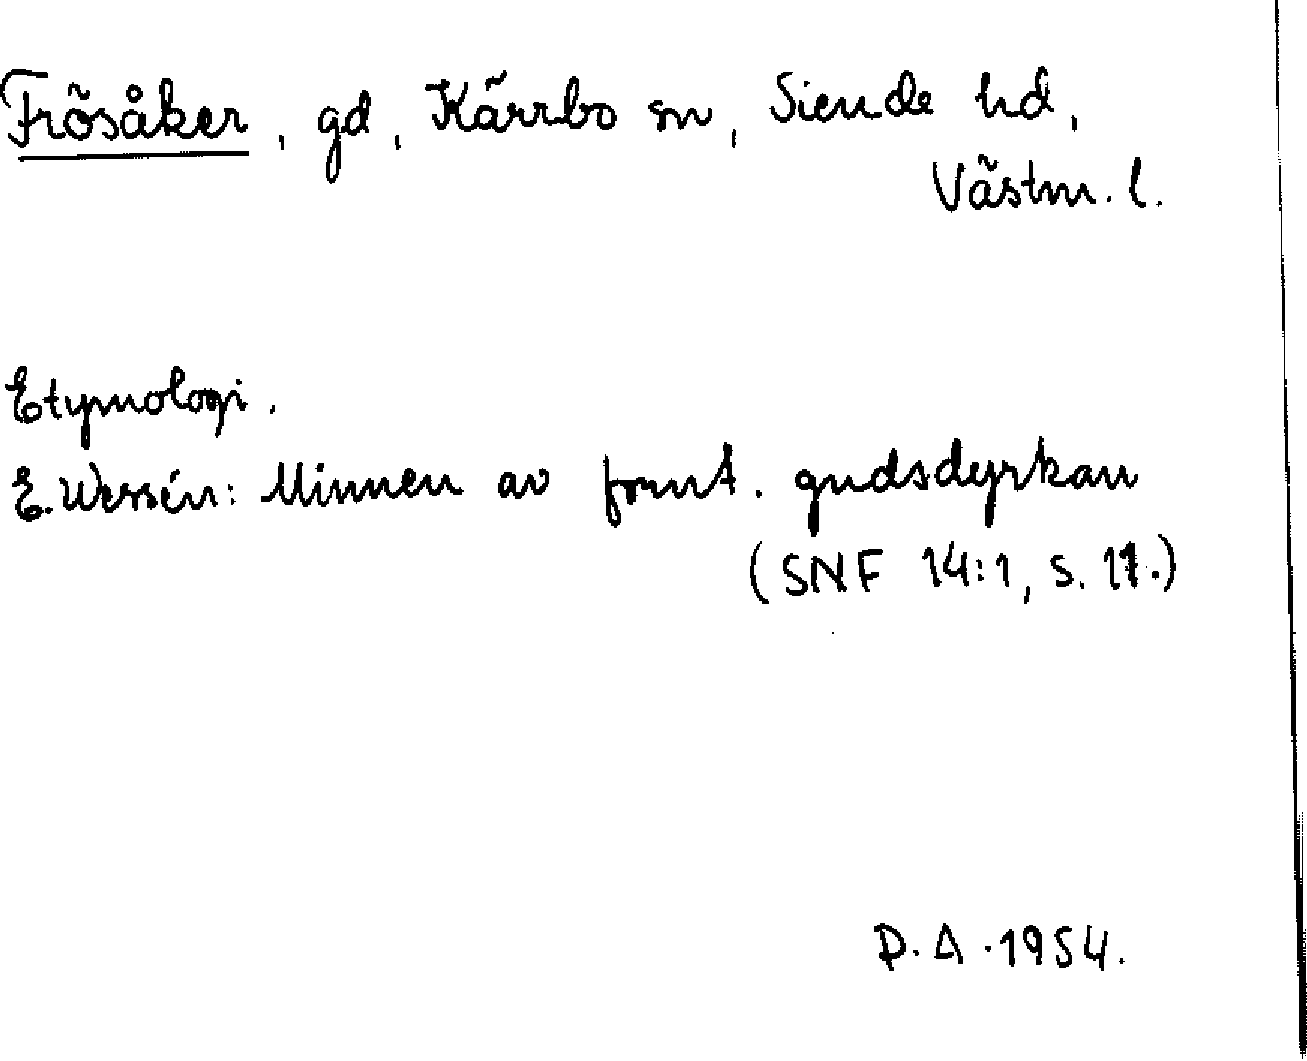 Frösåker, gd, Kärrbo sn, Siende hd,
Västm. l.
Etymologi.
E. Wessén: Minnen av fornt. gudsdyrkan
(SNF 14:1, s. 11.)
D. A. 1954.